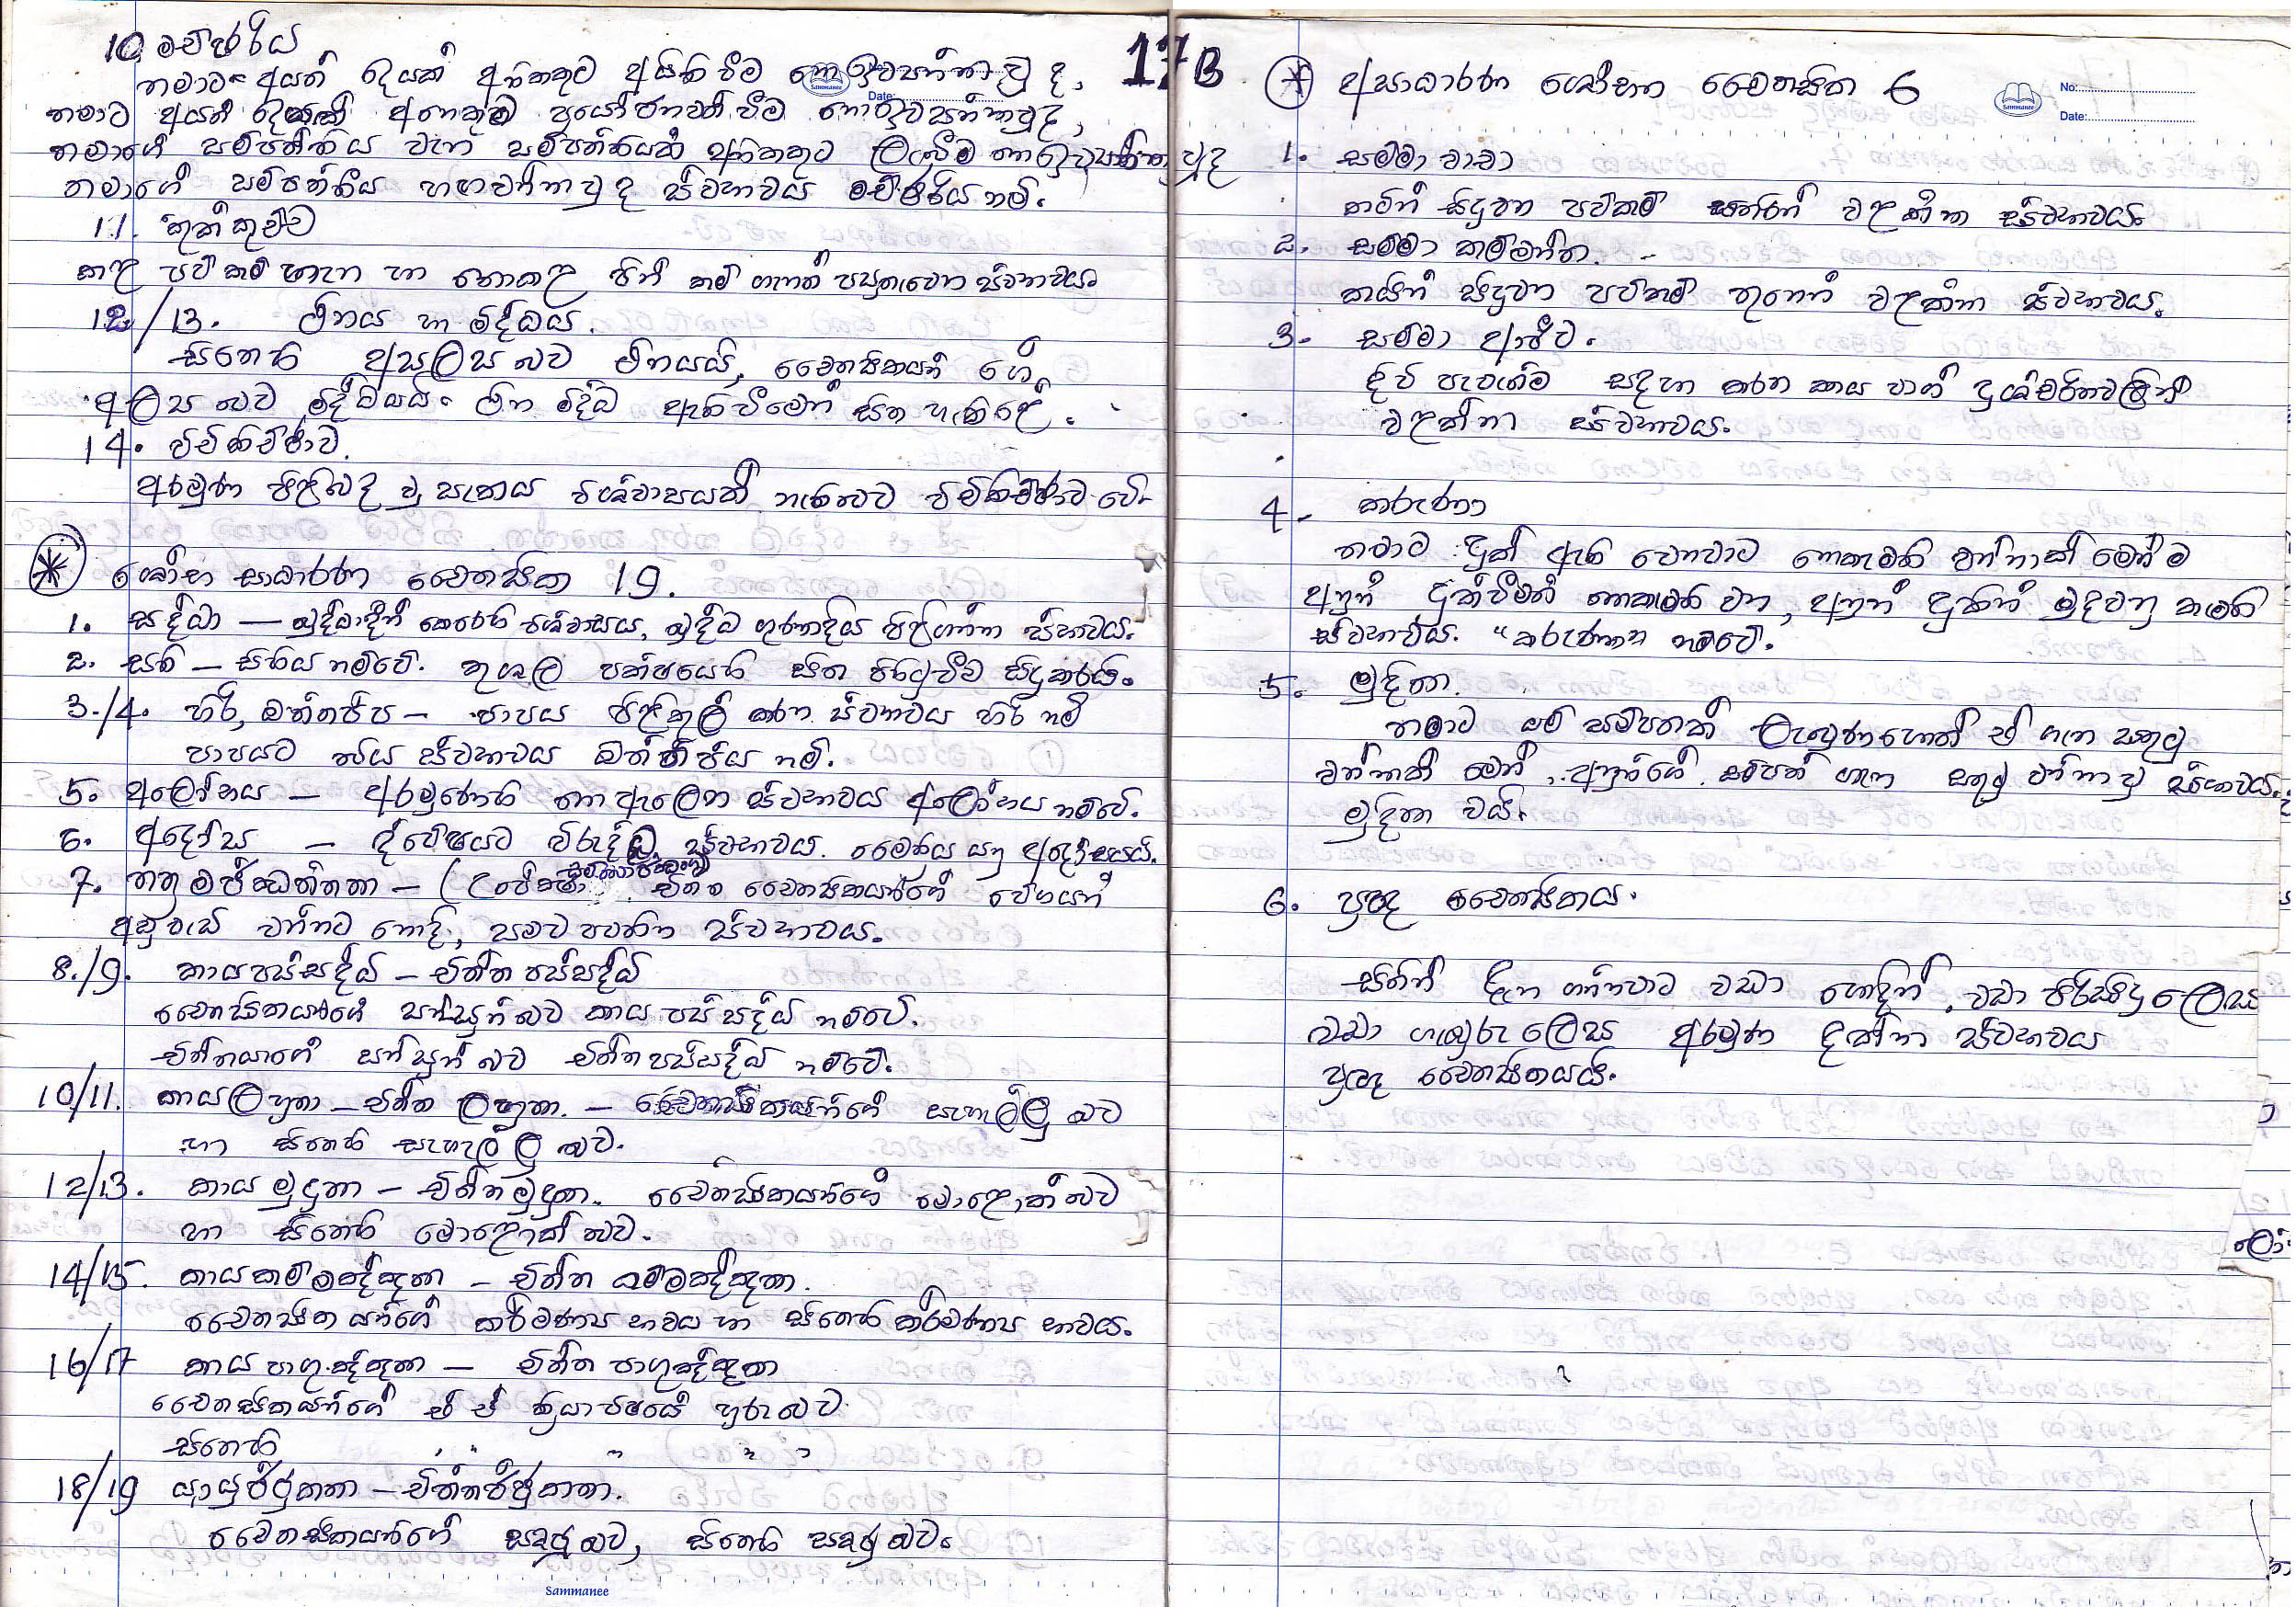 10 මච්ඡරිය
තමාට අයත් දෙයක් අනිකකුට අයිති වීම නො ඉවසන්නා වූ ද,
තමාට අයත් දෙයකින් අනෙකුට ප්‍රයෝජනවත් වීම නොඉවසන්නාවූද,
තමාගේ සම්පත්තිය වැනි සම්පත්තියක් අනිකකුට ලැබීම නොඉවසන්නා වූද
තමාගේ සම්පත්තිය සඟවන්නා වූ ද ස්වභාවය මච්ඡරිය නම්.
11. කුක්කුච්ච
කළ පව්කම් ගැන හා නොකළ පින් කම් ගැනත් පසුතැවෙන ස්වභාවය.
12/13. ථීනය හා මිද්ධය.
සිතෙහි අලස බව ථීනයයි, චෛතසිකයන් ගේ
අලස බව මිද්ධයයි. ථීන මිද්ධ ඇතිවීමෙන් සිත හැකිළේ.
14. විචිකිච්ඡාව.
අරමුණ පිළිබඳ වූ සැකය විශ්වාසයක් නැතිබව විචිකිච්ඡාව වේ.
ශෝභ සාධාරණ චෛතසික 19.
1. සද්ධා — බුද්ධාදීන් කෙරෙහි විශ්වාසය, බුද්ධ ගුණාදිය පිළිගන්නා ස්වභාවය.
2. සති – සිහිය නම්වේ. කුශල පක්ෂයෙහි සිත පිහිටුවීම සිදුකරයි.
3./4. හිරි, ඔත්තප්ප – පාපය පිළිකුල් කරන ස්වභාවය හිරි නම්
පාපයට භය ස්වභාවය ඔත්තප්පය නම්.
5. අලෝභය – අරමුණෙහි නො ඇලෙන ස්වභාවය අලෝභය නම්වේ.
6. අදෝස – ද්වේෂයට විරුද්ධ ස්වභාවය. මෛත්‍රිය යනු අදෝසයයි.
7. තත්‍රමජ්ඣත්තතා – (උපේක්ෂා චිත්ත චෛතසිකයන්ගේ වේගයන්
අඩු වැඩි වන්නට නොදී, සමව පවතින ස්වභාවය.
8./9. කායපස්සද්ධි – චිත්ත පස්සද්ධි
චෛතසිකයන්ගේ සන්සුන් බව කාය පස්සද්ධි නම්වේ.
චිත්තයාගේ සන්සුන් බව චිත්ත පස්සද්ධි නම්වේ.
10/11. කායලහුතා – චිත්ත ලහුතා. – චෛතසිකයන්ගේ සැහැල්ලු බව
හා සිතෙහි සැහැල්ලු බව.
12/13. කාය මුදුතා – චිත්ත මුදුතා. චෛතසිකයන්ගේ මොළොක් බව
හා සිතෙහි මොළොක් බව.
14/15. කායකම්මඤ්ඤතා – චිත්ත කම්මඤ්ඤතා.
චෛතසිකයන්ගේ කර්මණ්‍ය භාවය හා සිතෙහි කර්මණ්‍ය භාවය.
16/17 කාය පාගුඤ්ඤතා – චිත්ත පාගුඤ්ඤතා
චෛතසිකයන්ගේ ඒ ඒ ක්‍රියා විෂයේ හුරු බව
සිතෙහි " " " "
18/19 කායුජ්ජුකතා – චිත්තජ්ජුකතා.
චෛතසිකයන්ගේ සෘජු බව, සිතෙහි සෘජු බව.
Sammanee
17B
අසාධාරණ ශෝභන චෛතසික 6
No:
Date:
1. සම්මා වාචා
කටින් සිදුවන පව්කම් සතරින් වළකින ස්වභාවය.
2. සම්මා කම්මන්ත.
කයින් සිදුවන පව්කම් තුනෙන් වළකින ස්වභාවය.
3- සම්මා ආජීව.
දිවි පැවැත්ම සඳහා කරන කාය වාග් දුශ්චරිතවලින්
වළකින්නා ස්වභාවය.
4- කරුණා
තමාට දුක් ඇති වෙනවාට නොකැමති වන්නාක් මෙන්ම
අනුන් දුක්වීමත් නොකැමති වන, අනුන් දුකින් මුදවනු කැමති
ස්වභාවය. "කරුණා" නම්වේ.
5. මුදිතා.
තමාට යම් සම්පතක් ලැබුණහොත් ඒ ගැන සතුටු
වන්නාක් මෙන්, අනුන්ගේ සම්පත් ගැන සතුටු වන්නා වූ ස්වභාවය.
මුදිතා වයි.
6. ප්‍රඥා චෛතසිකය.
සිතින් දැන ගන්නවාට වඩා හොඳින්, වඩා පිරිසිදු ලෙස
වඩා ගැඹුරු ලෙස අරමුණ දන්නා ස්වභාවය
ප්‍රඥා චෛතසිකයයි.